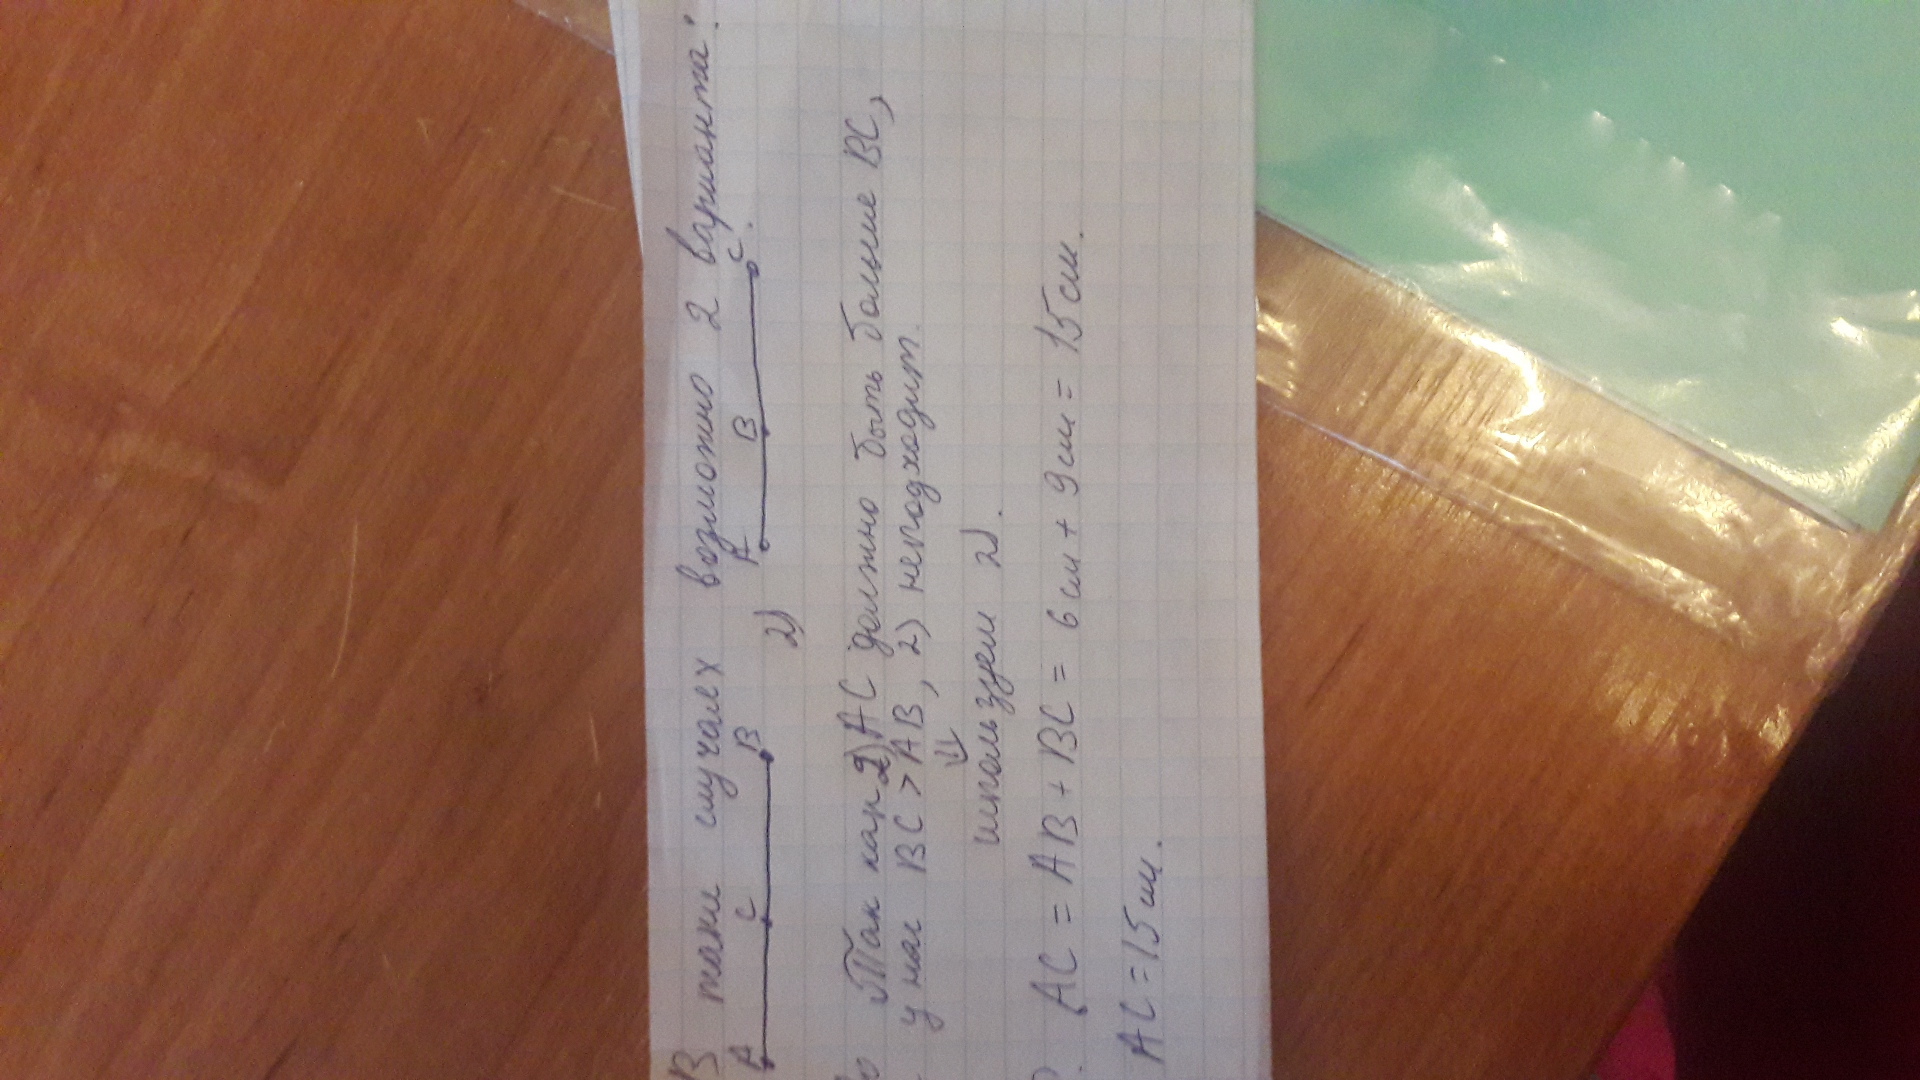 В таки случаях возможно 2 варианта:
A C B 2) A B C.
Так как 2) AC должно быть больше BC,
у нас BC > AB, 2) неподходит.
⇓
используем 2).
AC = AB + BC = 6 см + 9 см = 15 см.
AC = 15 см.